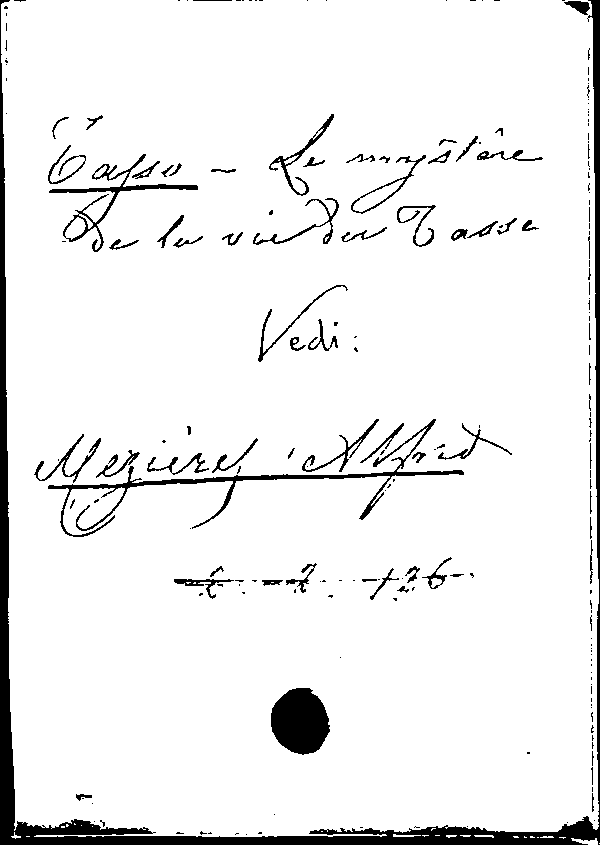 Tasso - Le mystère
de la vie du Tasse
Vedi:
Mezières Alfred